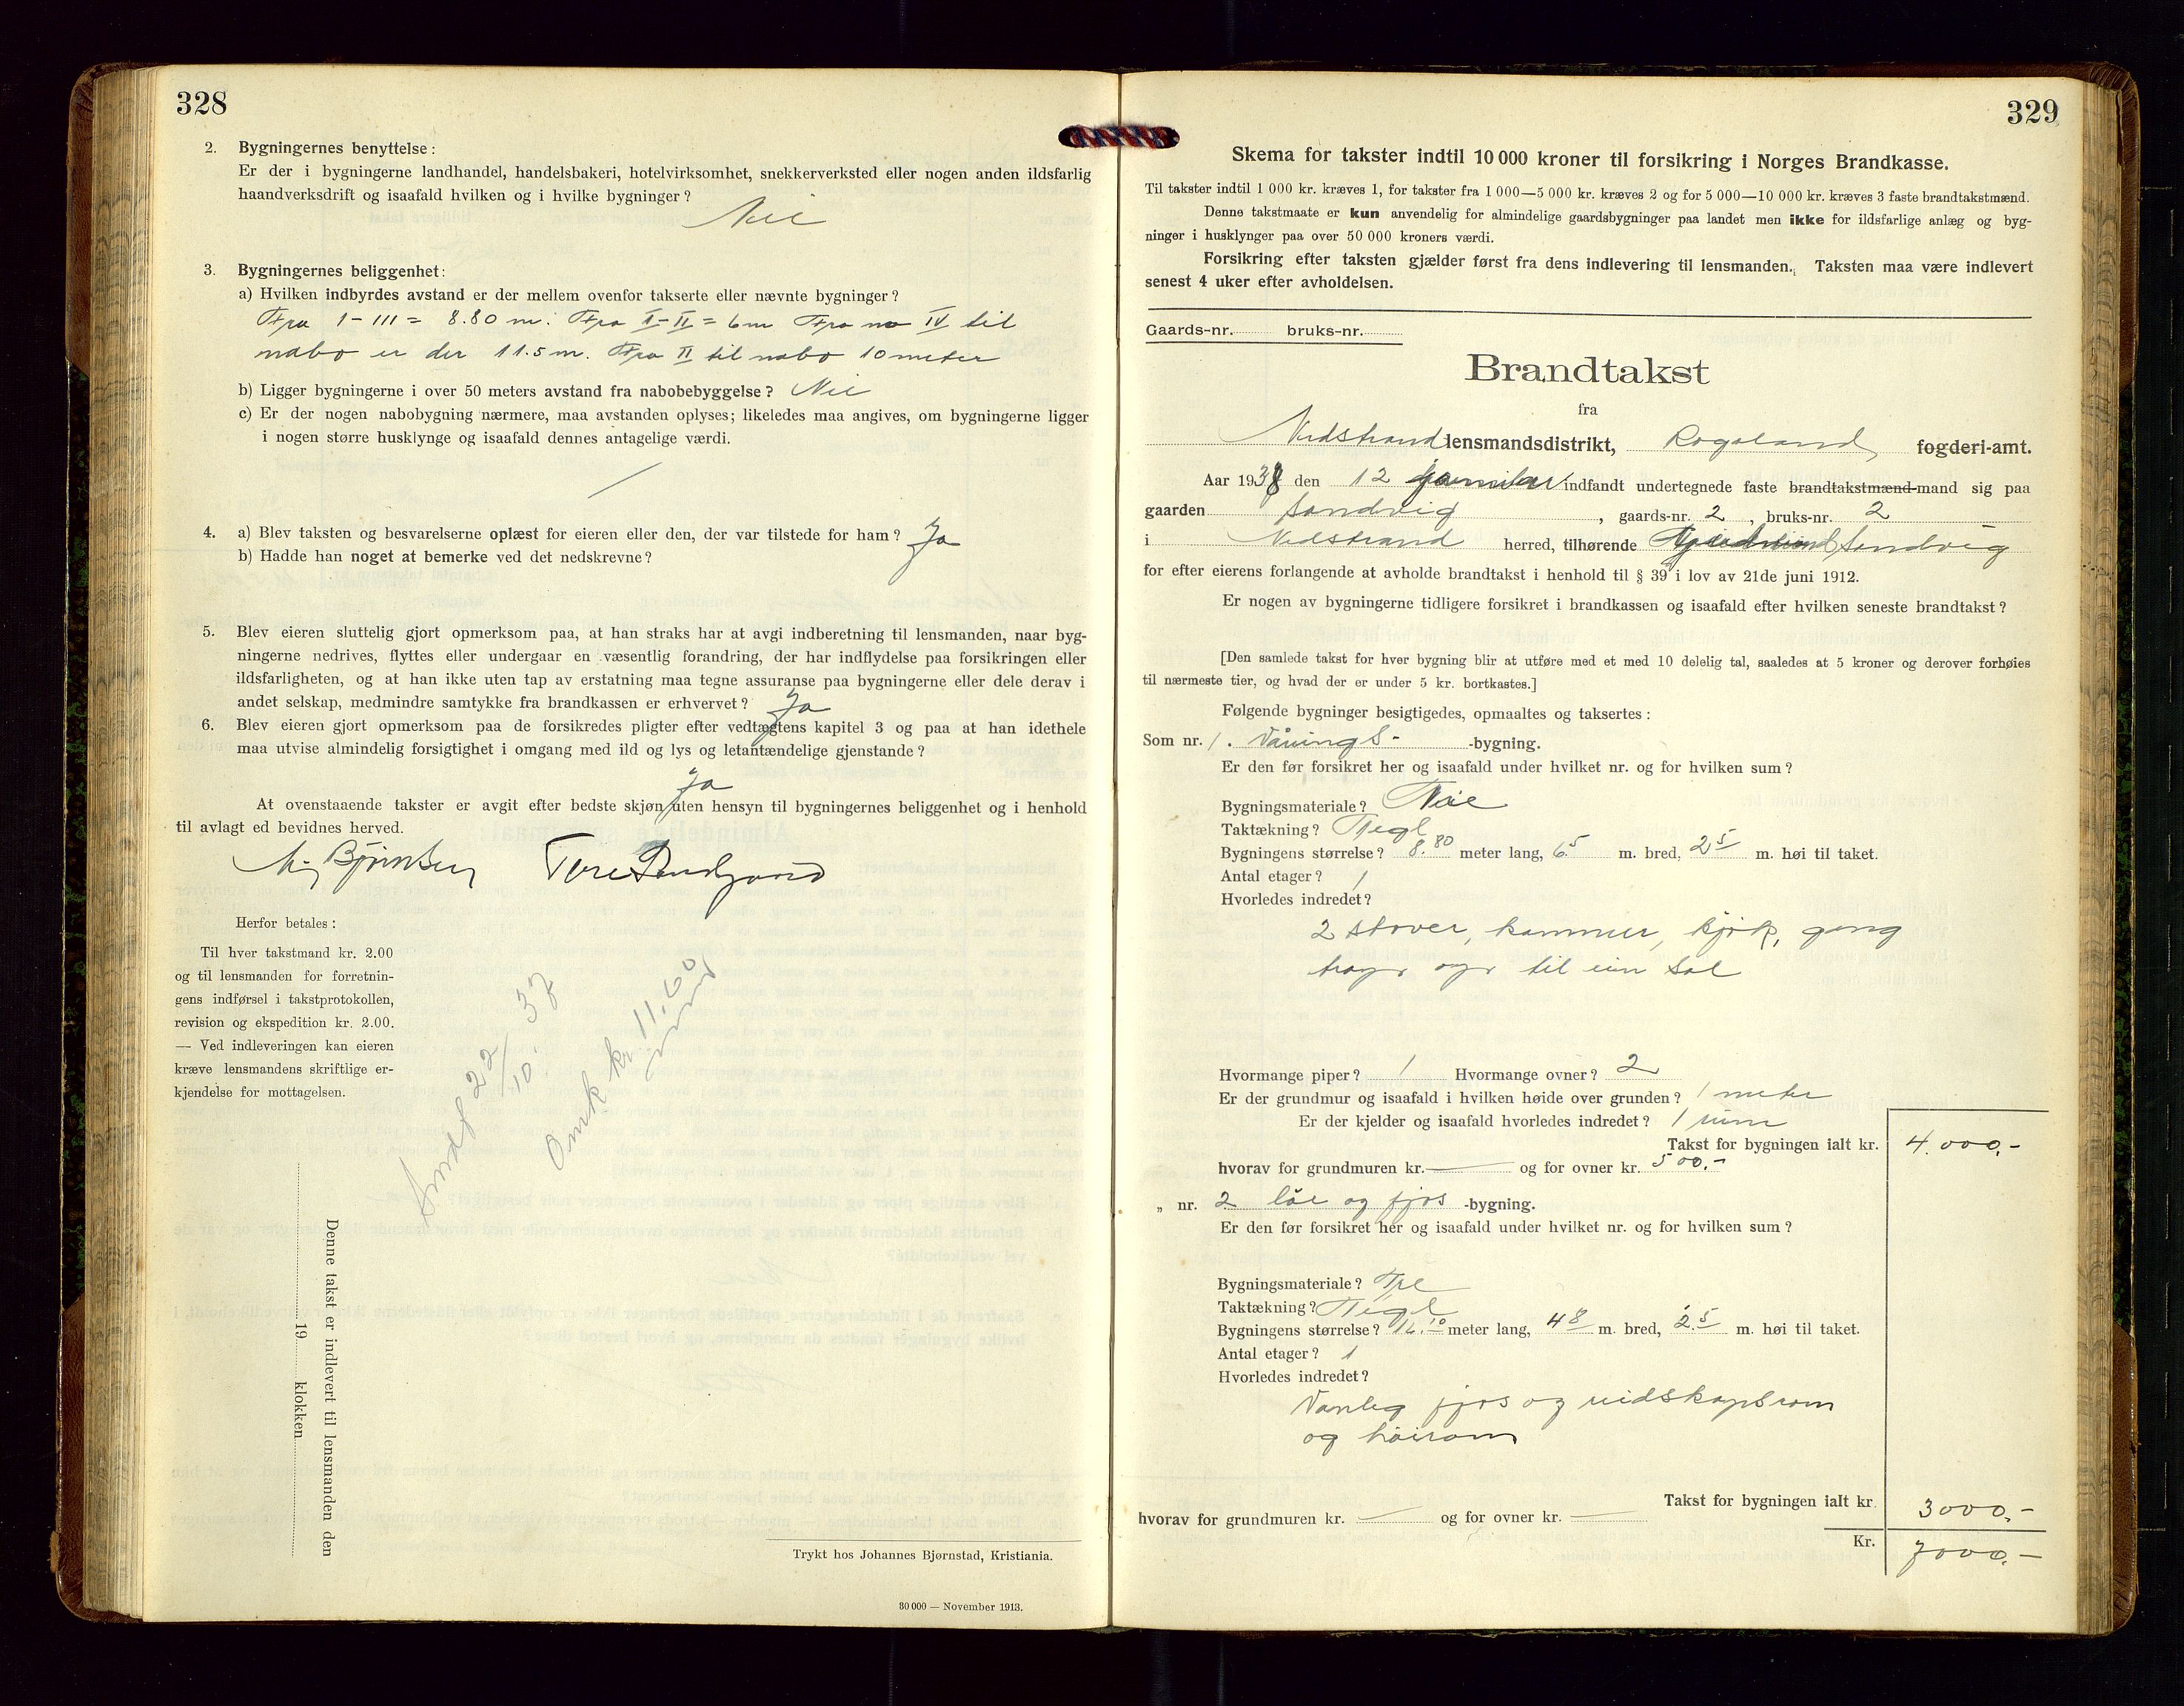 328
2. Bygningernes benyttelse:
Er der i bygningerne landhandel, handelsbakeri, hotelvirksomhet, snekkerverksted eller nogen anden ildsfarlig
haandverksdrift og isaafald hvilken og i hvilke bygninger?
Nei
3. Bygningernes beliggenhet:
a) Hvilken indbyrdes avstand er der mellem ovenfor takserte eller nævnte bygninger?
Fra 1-III = 8.80 m. Fra I-II = 6 m Fra no IV til
nabo er der 11.5 m. Fra II til nabo 10 meter
b) Ligger bygningerne i over 50 meters avstand fra nabobebyggelse? Nei
c) Er der nogen nabobygning nærmere, maa avstanden oplyses; likeledes maa angives, om bygningerne ligger
i nogen større husklynge og isaafald dennes antagelige værdi.
4. a) Blev taksten og besvarelserne oplæst for eieren eller den, der var tilstede for ham? Ja
b) Hadde han noget at bemerke ved det nedskrevne?
5. Blev eieren sluttelig gjort opmerksom paa, at han straks har at avgi indberetning til lensmanden, naar byg-
ningerne nedrives, flyttes eller undergaar en væsentlig forandring, der har indflydelse paa forsikringen eller
ildsfarligheten, og at han ikke uten tap av erstatning maa tegne assuranse paa bygningerne eller dele derav i
andet selskap, medmindre samtykke fra brandkassen er erhvervet? Ja
6. Blev eieren gjort opmerksom paa de forsikredes pligter efter vedtægtens kapitel 3 og paa at han idethele
maa utvise almindelig forsigtighet i omgang med ild og lys og letantændelige gjenstande?
Ja
At ovenstaaende takster er avgit efter bedste skjøn uten hensyn til bygningernes beliggenhet og i henhold
til avlagt ed bevidnes herved.
Bjørnsen Tore
Herfor betales:
Til hver takstmand kr. 2.00
og til lensmanden for forretnin-
gens indførsel i takstprotokollen,
revision og ekspedition kr. 2.00.
— Ved indleveringen kan eieren
kræve lensmandens skriftlige er-
kjendelse for mottagelsen.
Indf 22/10. 37
Omk kr. 11.60
Denne takst er indlevert til lensmanden den
19 klokken
Trykt hos Johannes Bjørnstad, Kristiania.
30 000 — November 1913.
329
Skema for takster indtil 10 000 kroner til forsikring i Norges Brandkasse.
Til takster indtil 1 000 kr. kræves 1, for takster fra 1 000—5 000 kr. kræves 2 og for 5 000—10 000 kr. kræves 3 faste brandtakstmænd.
Denne takstmaate er kun anvendelig for almindelige gaardsbygninger paa landet men ikke for ildsfarlige anlæg og byg-
ninger i husklynger paa over 50 000 kroners værdi.
Forsikring efter taksten gjælder først fra dens indlevering til lensmanden. Taksten maa være indlevert
senest 4 uker efter avholdelsen.
Gaards-nr. bruks-nr.
Brandtakst
fra
Nedstrand lensmandsdistrikt, Rogaland fogderi-amt.
Aar 1938 den 12 januar indfandt undertegnede faste brandtakstmænd-mand sig paa
gaarden Sandvig, gaards-nr. 2, bruks-nr. 2
i Nedstrand herred, tilhørende Sandvig
for efter eierens forlangende at avholde brandtakst i henhold til § 39 i lov av 21de juni 1912.
Er nogen av bygningerne tidligere forsikret i brandkassen og isaafald efter hvilken seneste brandtakst?
[Den samlede takst for hver bygning blir at utføre med et med 10 delelig tal, saaledes at 5 kroner og derover forhøies
til nærmeste tier, og hvad der er under 5 kr. bortkastes.]
Følgende bygninger besigtigedes, opmaaltes og taksertes:
Som nr. 1. Vånings- -bygning.
Er den før forsikret her og isaafald under hvilket nr. og for hvilken sum?
Bygningsmateriale?
Taktækning? Tegl
Bygningens størrelse? 8.80 meter lang, 6.5 m. bred, 2.5 m. høi til taket.
Antal etager? 1
Hvorledes indredet?
2 stover, kammer, kjøk, gang
trapp opp til ein Sal
Hvormange piper? 1 Hvormange ovner? 2
Er der grundmur og isaafald i hvilken høide over grunden? 1 meter
Er der kjelder og isaafald hvorledes indredet? 1 rum
Takst for bygningen ialt kr. 4.000,-
hvorav for grundmuren kr. — og for ovner kr. 500.-
„ nr. 2 löe og fjos -bygning.
Er den før forsikret her og isaafald under hvilket nr. og for hvilken sum?
Bygningsmateriale? Tre
Taktækning? Tegl
Bygningens størrelse? 16.10 meter lang, 4.8 m. bred, 2.5 m. høi til taket.
Antal etager? 1
Hvorledes indredet?
Vanleg fjos og reidskapsrom
og höirom
Takst for bygningen ialt kr. 3000,-
hvorav for grundmuren kr. — og for ovner kr. —
Kr. 7000,-